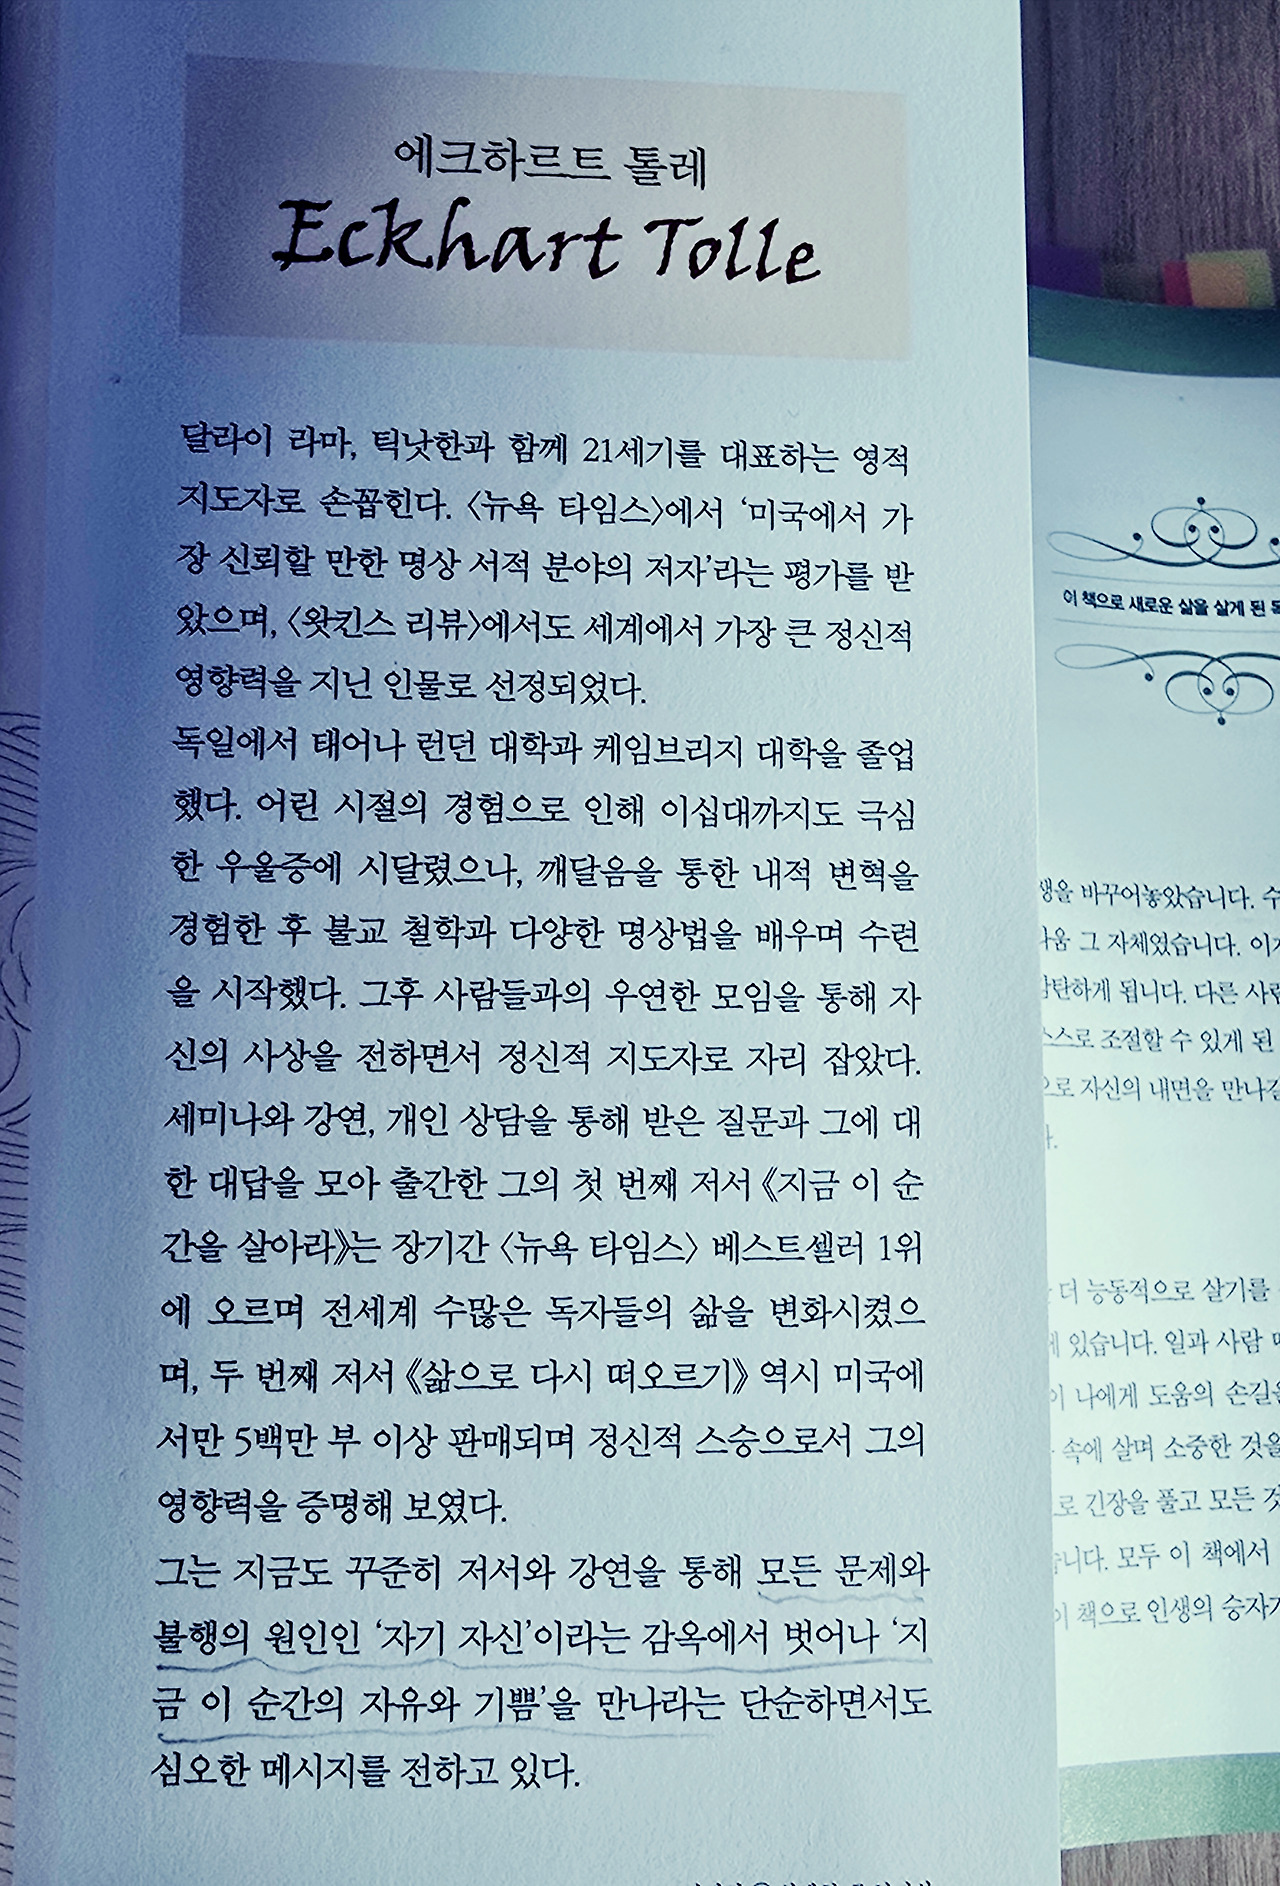 에크하르트 톨레
Eckhart Tolle
달라이 라마, 틱낫한과 함께 21세기를 대표하는 영적
지도자로 손꼽힌다. 〈뉴욕 타임스〉에서 ‘미국에서 가
장 신뢰할 만한 명상 서적 분야의 저자’라는 평가를 받
았으며, 〈왓킨스 리뷰〉에서도 세계에서 가장 큰 정신적
영향력을 지닌 인물로 선정되었다.
독일에서 태어나 런던 대학과 케임브리지 대학을 졸업
했다. 어린 시절의 경험으로 인해 이십대까지도 극심
한 우울증에 시달렸으나, 깨달음을 통한 내적 변혁을
경험한 후 불교 철학과 다양한 명상법을 배우며 수련
을 시작했다. 그후 사람들과의 우연한 모임을 통해 자
신의 사상을 전하면서 정신적 지도자로 자리 잡았다.
세미나와 강연, 개인 상담을 통해 받은 질문과 그에 대
한 대답을 모아 출간한 그의 첫 번째 저서 《지금 이 순
간을 살아라》는 장기간 〈뉴욕 타임스〉 베스트셀러 1위
에 오르며 전세계 수많은 독자들의 삶을 변화시켰으
며, 두 번째 저서 《삶으로 다시 떠오르기》 역시 미국에
서만 5백만 부 이상 판매되며 정신적 스승으로서 그의
영향력을 증명해 보였다.
그는 지금도 꾸준히 저서와 강연을 통해 모든 문제와
불행의 원인인 ‘자기 자신’이라는 감옥에서 벗어나 ‘지
금 이 순간의 자유와 기쁨’을 만나라는 단순하면서도
심오한 메시지를 전하고 있다.
이 책으로 새로운 삶을 살게 된
바꾸어놓았습니다.
그 자체였습니다.
됩니다. 다른
조절할 수 있게 된
자신의 내면을
더 능동적으로 살기를
있습니다. 일과 사람
나에게 도움의
속에 살며 소중한
긴장을 풀고 모든
모두 이 책에서
책으로 인생의